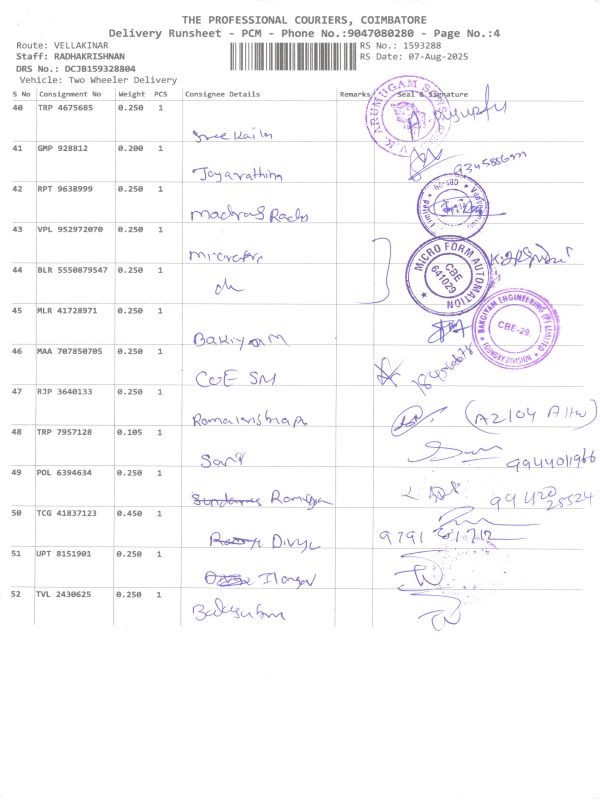 THE PROFESSIONAL COURIERS, COIMBATORE
Delivery Runsheet - PCM - Phone No.:9047080280 - Page No.:4
Route: VELLAKINAR
RS No.: 1593288
Staff: RADHAKRISHNAN
RS Date: 07-Aug-2025
DRS No.: DCJB159328804
Vehicle: Two Wheeler Delivery
S No Consignment No Weight PCS Consignee Details Remarks Seal & Signature
40 TRP 4675685 0.250 1
Sree Kailas
41 GMP 928812 0.200 1
Jayarathina
42 RPT 9638999 0.250 1
Madras Radio
43 VPL 952972070 0.250 1
Microfo
MICRO FORM AUTOMATION
CBE
641029
44 BLR 5550879547 0.250 1
do
45 MLR 41728971 0.250 1
Bakiyam
BAKGIYAM ENGINEERING (P) LIMITED
CBE-29.
FOUNDRY DIVISION
46 MAA 707850705 0.250 1
COE SM
47 RJP 3640133 0.250 1
(A2104
48 TRP 7957128 0.105 1
9944011966
49 POL 6394634 0.250 1
99420
28524
50 TCG 41837123 0.450 1
Divya
9791
51 UPT 8151901 0.250 1
Ilango
52 TVL 2430625 0.250 1